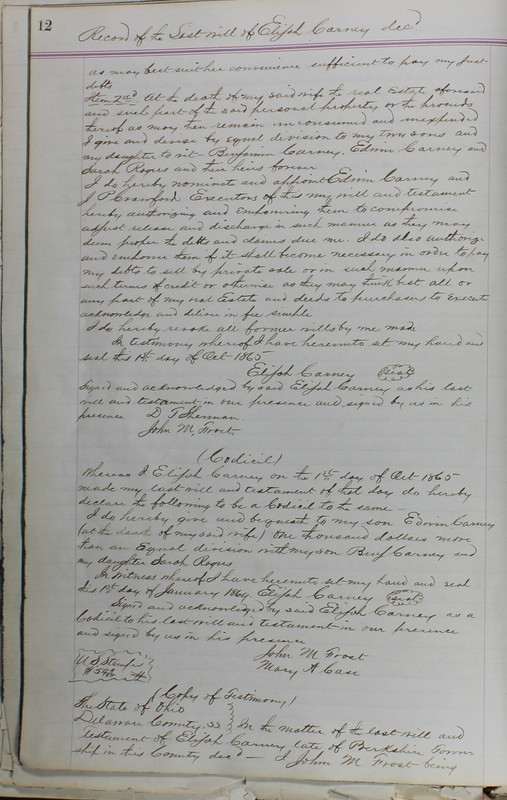 12
Record of the Last will of Elijah Carney decd
as may best suit her convenience sufficient to pay my just
debts
Item 2nd. At the death of my said wife the real Estate aforesaid
and such part of the said personal property, or the proceeds
thereof as may then remain unconsumed and unexpended
I give and devise by equal division to my two sons and
my daughter to wit- Benjamin Carney, Edwin Carney and
Sarah Rogers and their heirs forever
I do hereby nominate and appoint Edwin Carney and
J. P. Crawford Executors of this my will and testament
hereby authorizing and empowering them to compromise
adjust release and discharge in such manner as they may
deem proper the debts and claims due me. I do also authorize
and empower them if it shall become necessary in order to pay
my debts to sell by private sale or in such manner upon
such terms of credit or otherwise as they may think best all or
any part of my real Estate and deeds to purchasers to execute
acknowledge and deliver in fee simple
I do hereby revoke all former wills by me made
In testimony whereof I have hereunto set my hand and
seal this 1st. day of Oct 1865
Elijah Carney (Seal)
Signed and acknowledged by said Elijah Carney as his last
will and testament in our presence and signed by us in his
presence D. T. Sherman
John M. Frost
(Codicil)
Whereas I Elijah Carney on the 1st. day of Oct 1865
made my last will and testament of that day do hereby
declare the following to be a Codicil to the same -
I do hereby give and bequeath to my son Edwin Carney
(at the death of my said wife) One thousand dollars more
than an Equal division with my son Benj Carney and
my daughter Sarah Rogers
In Witness whereof I have hereunto set my hand and seal
this 1st. day of January 1867, Elijah Carney (Seal)
Signed and acknowledged by said Elijah Carney as a
Codicil to his last will and testament in our presence
and signed by us in his presence
John M Frost
Mary A Case
U S Stamps
(Copy of Testimony)
The State of Ohio
Delaware County, SS } In the matter of the last will and
testament of Elijah Carney, late of Berkshire Town
ship in this County decd - I John M Frost being